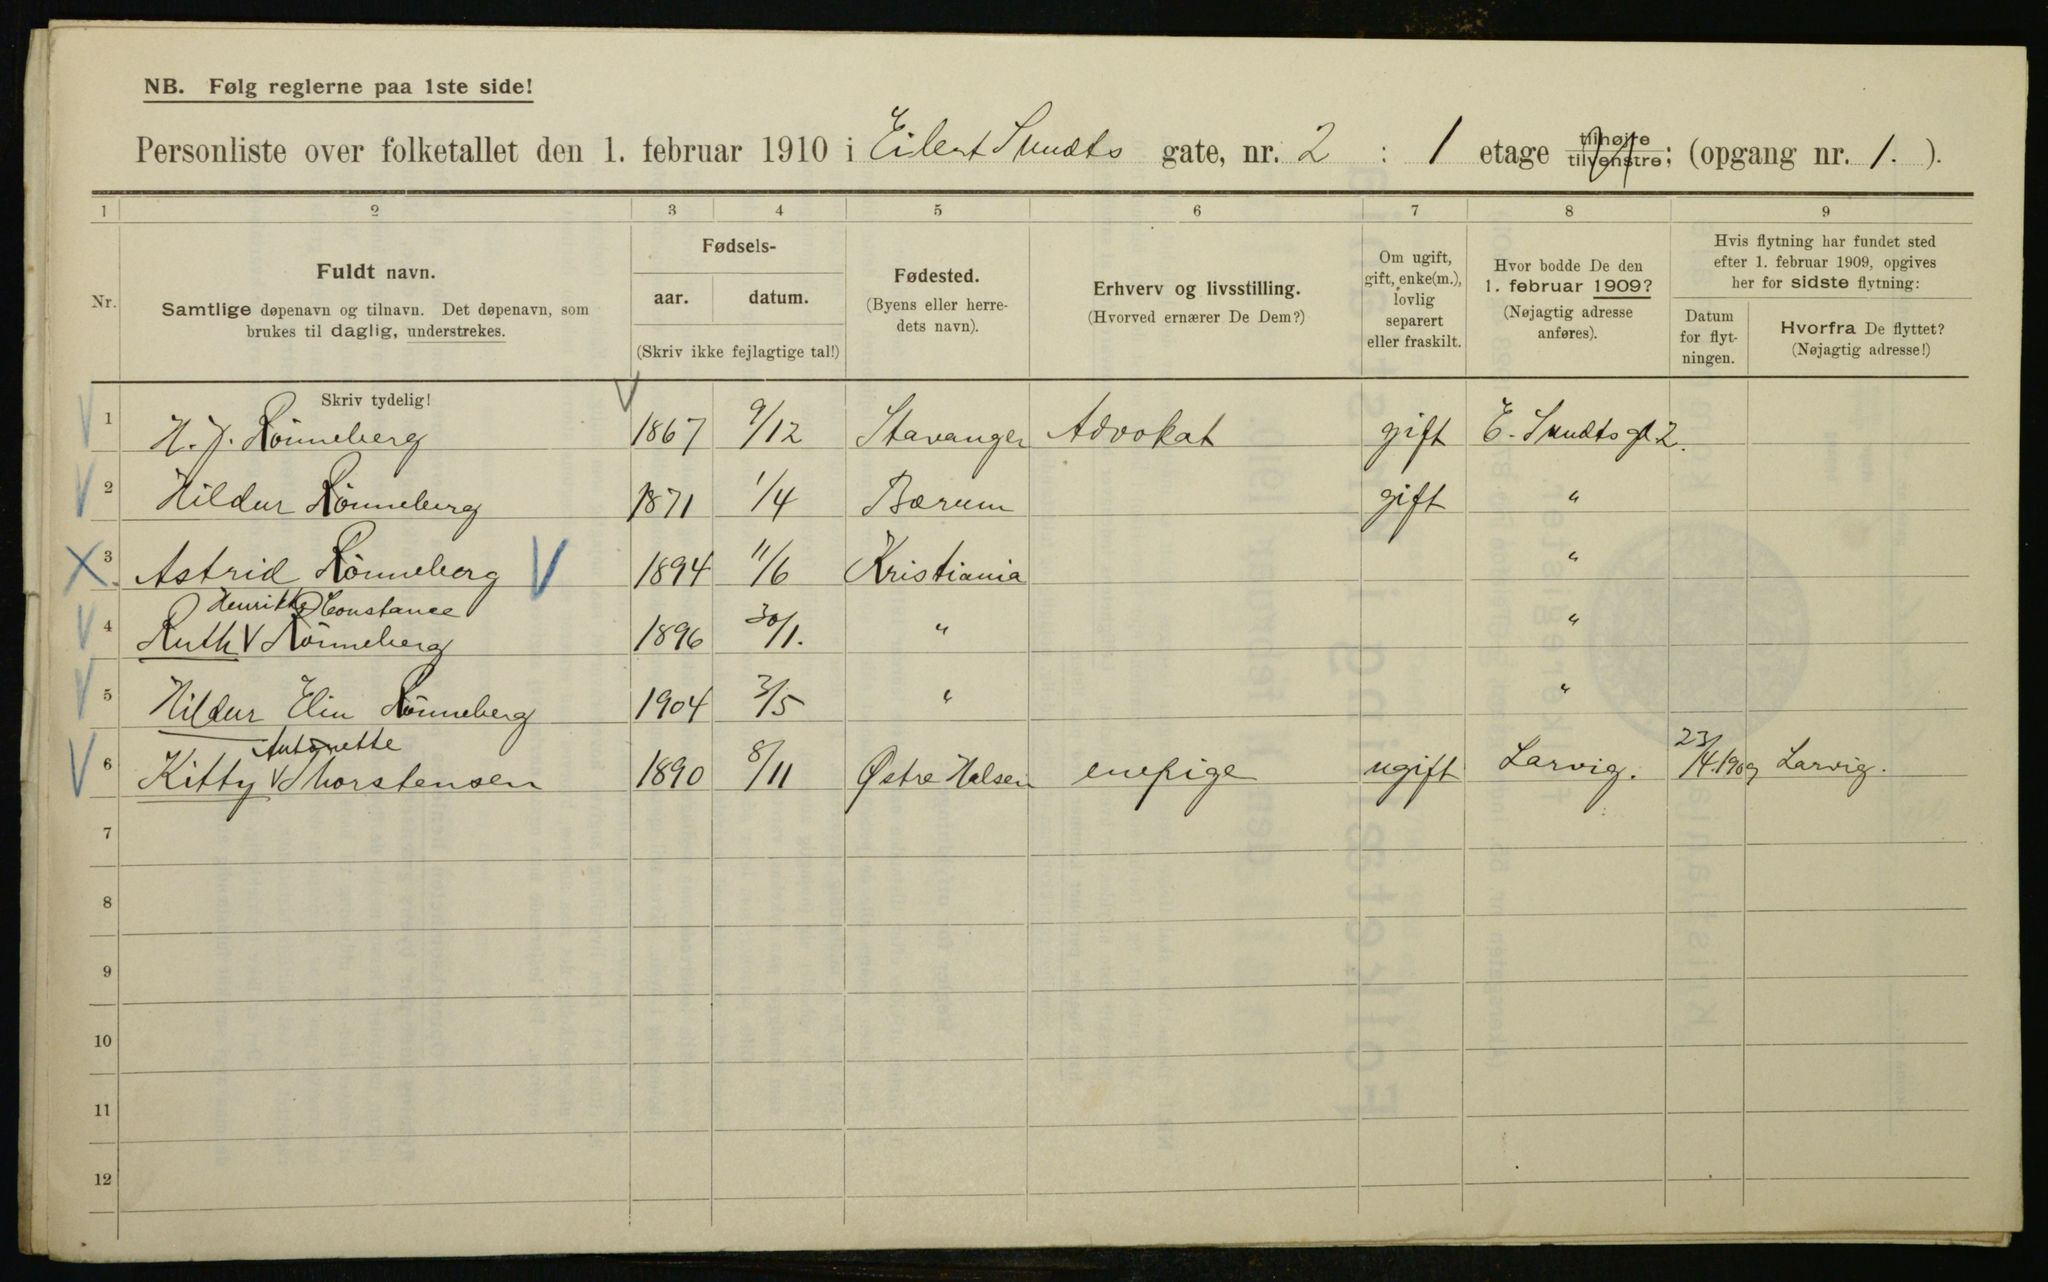 NB. Følg reglerne paa 1ste side!
Personliste over folketallet den 1. februar 1910 i Eilert Sundts gate, nr. 2 : 1 etage tilhøjre tilvenstre; (opgang nr. 1. ).
1 2 3 4 5 6 7 8 9
Nr.
Fuldt navn.
Samtlige døpenavn og tilnavn. Det døpenavn, som
brukes til daglig, understrekes.
Fødsels-
aar. datum.
(Skriv ikke fejlagtige tal!)
Fødested.
(Byens eller herre-
dets navn).
Erhverv og livsstilling.
(Hvorved ernærer De Dem?)
Om ugift,
gift, enke(m.),
lovlig
separert
eller fraskilt.
Hvor bodde De den
1. februar 1909?
(Nøjagtig adresse
anføres).
Hvis flytning har fundet sted
efter 1. februar 1909, opgives
her for sidste flytning:
Datum
for flyt-
ningen.
Hvorfra De flyttet?
(Nøjagtig adresse!)
Skriv tydelig!
1 H. J. Rönneberg 1867 9/12 Stavanger Advokat gift E. Sundts gt 2.
2 Hildur Rönneberg 1871 1/4 Bærum gift "
3 Astrid Rönneberg 1894 11/6 Kristiania "
Henrikke Constance
4 Ruth V Rönneberg 1896 30/1. " "
5 Hildur Elin Rönneberg 1904 3/5 " "
Antonette
6 Kitty V Thorstensen 1890 8/11 Østre Halsen enepige ugift Larvig. 23/4.1909 Larvig.
7
8
9
10
11
12